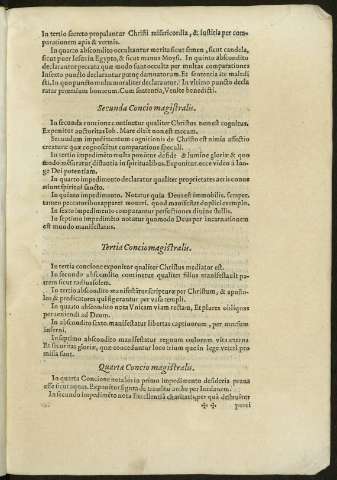 In tertio secreto propalantur Christi misericordia, & iustitia per com-
parationem apis & vermis.
In quarto abscondito occultantur merita sicut semen, sicut candela,
sicut puer Iesus in Egypto, & sicut manus Moysi. In quinto abscondito
declarantur peccata quæ modo sunt occulta per multas comparationes
In sexto puncto declarantur pœnę damnatorum. Et sententia ite maledi
cti. In quo puncto multa moraliter declarantur. In vltimo puncto decla
ratur præmium bonorum. Cum sententia, Venite benedicti.
Secunda Concio magistralis.
In secunda concione continetur qualiter Christus non est cognitus.
Exponitur auctoritas Iob. Mare dixit non est mecum.
Secundum impedimentum cognitionis de Christo est nimia affectio
creaturæ quæ cognoscitur comparatione speculi.
In tertio impedimēto multa ponitur de fide & lumine gloriæ & quo
modo mēsuratur distantia in spiritualibus. Exponitur. ecce video à lon-
ge Dei potentiam.
In quarto impedimento declaratur qualiter proprietates aeris conue
niunt spiritui sancto.
In quinto impedimento. Notatur quia Deus est immobilis. semper.
tamen peccatoribus apparet moueri. quod manifestat duplici exemplo.
In sexto impedimento comparantur perfectiones diuinę stellis.
In septimo impedimēto notatur quomodo Deus per incarnationem
est mundo manifestatus.
Tertia Concio magistralis.
In tertia concione exponitur qualiter Christus mediator est.
In secundo abscōdito. continetur qualiter filius manifestauit pa-
trem sicut radius solem.
In tertio abscondito manifestātur scripturæ per Christum, & aposto-
los & prædicatores qui figurantur per vasa templi.
In quarto abscondito nota Vnicam viam rectam, Et plures obliquas
perueniendi ad Deum.
In abscondito sexto manifestatur libertas captiuorum, per mucium
inferni.
In septimo abscondito manifestatur regnum cœlorum vita æterna
Et securitas gloriæ, quæ conceduntur loco trium quę in lege veteri pro
missa sunt.
Quarta Concio magistralis.
In quarta Concione notabis in primo impedimento desideria praua
esse sicut aquas. Exponitur figura de transitu archæ per Iordanem.
In secundo impedimēto nota Excellentiā charitatis, per quā destruitur
✠ ✠ parui